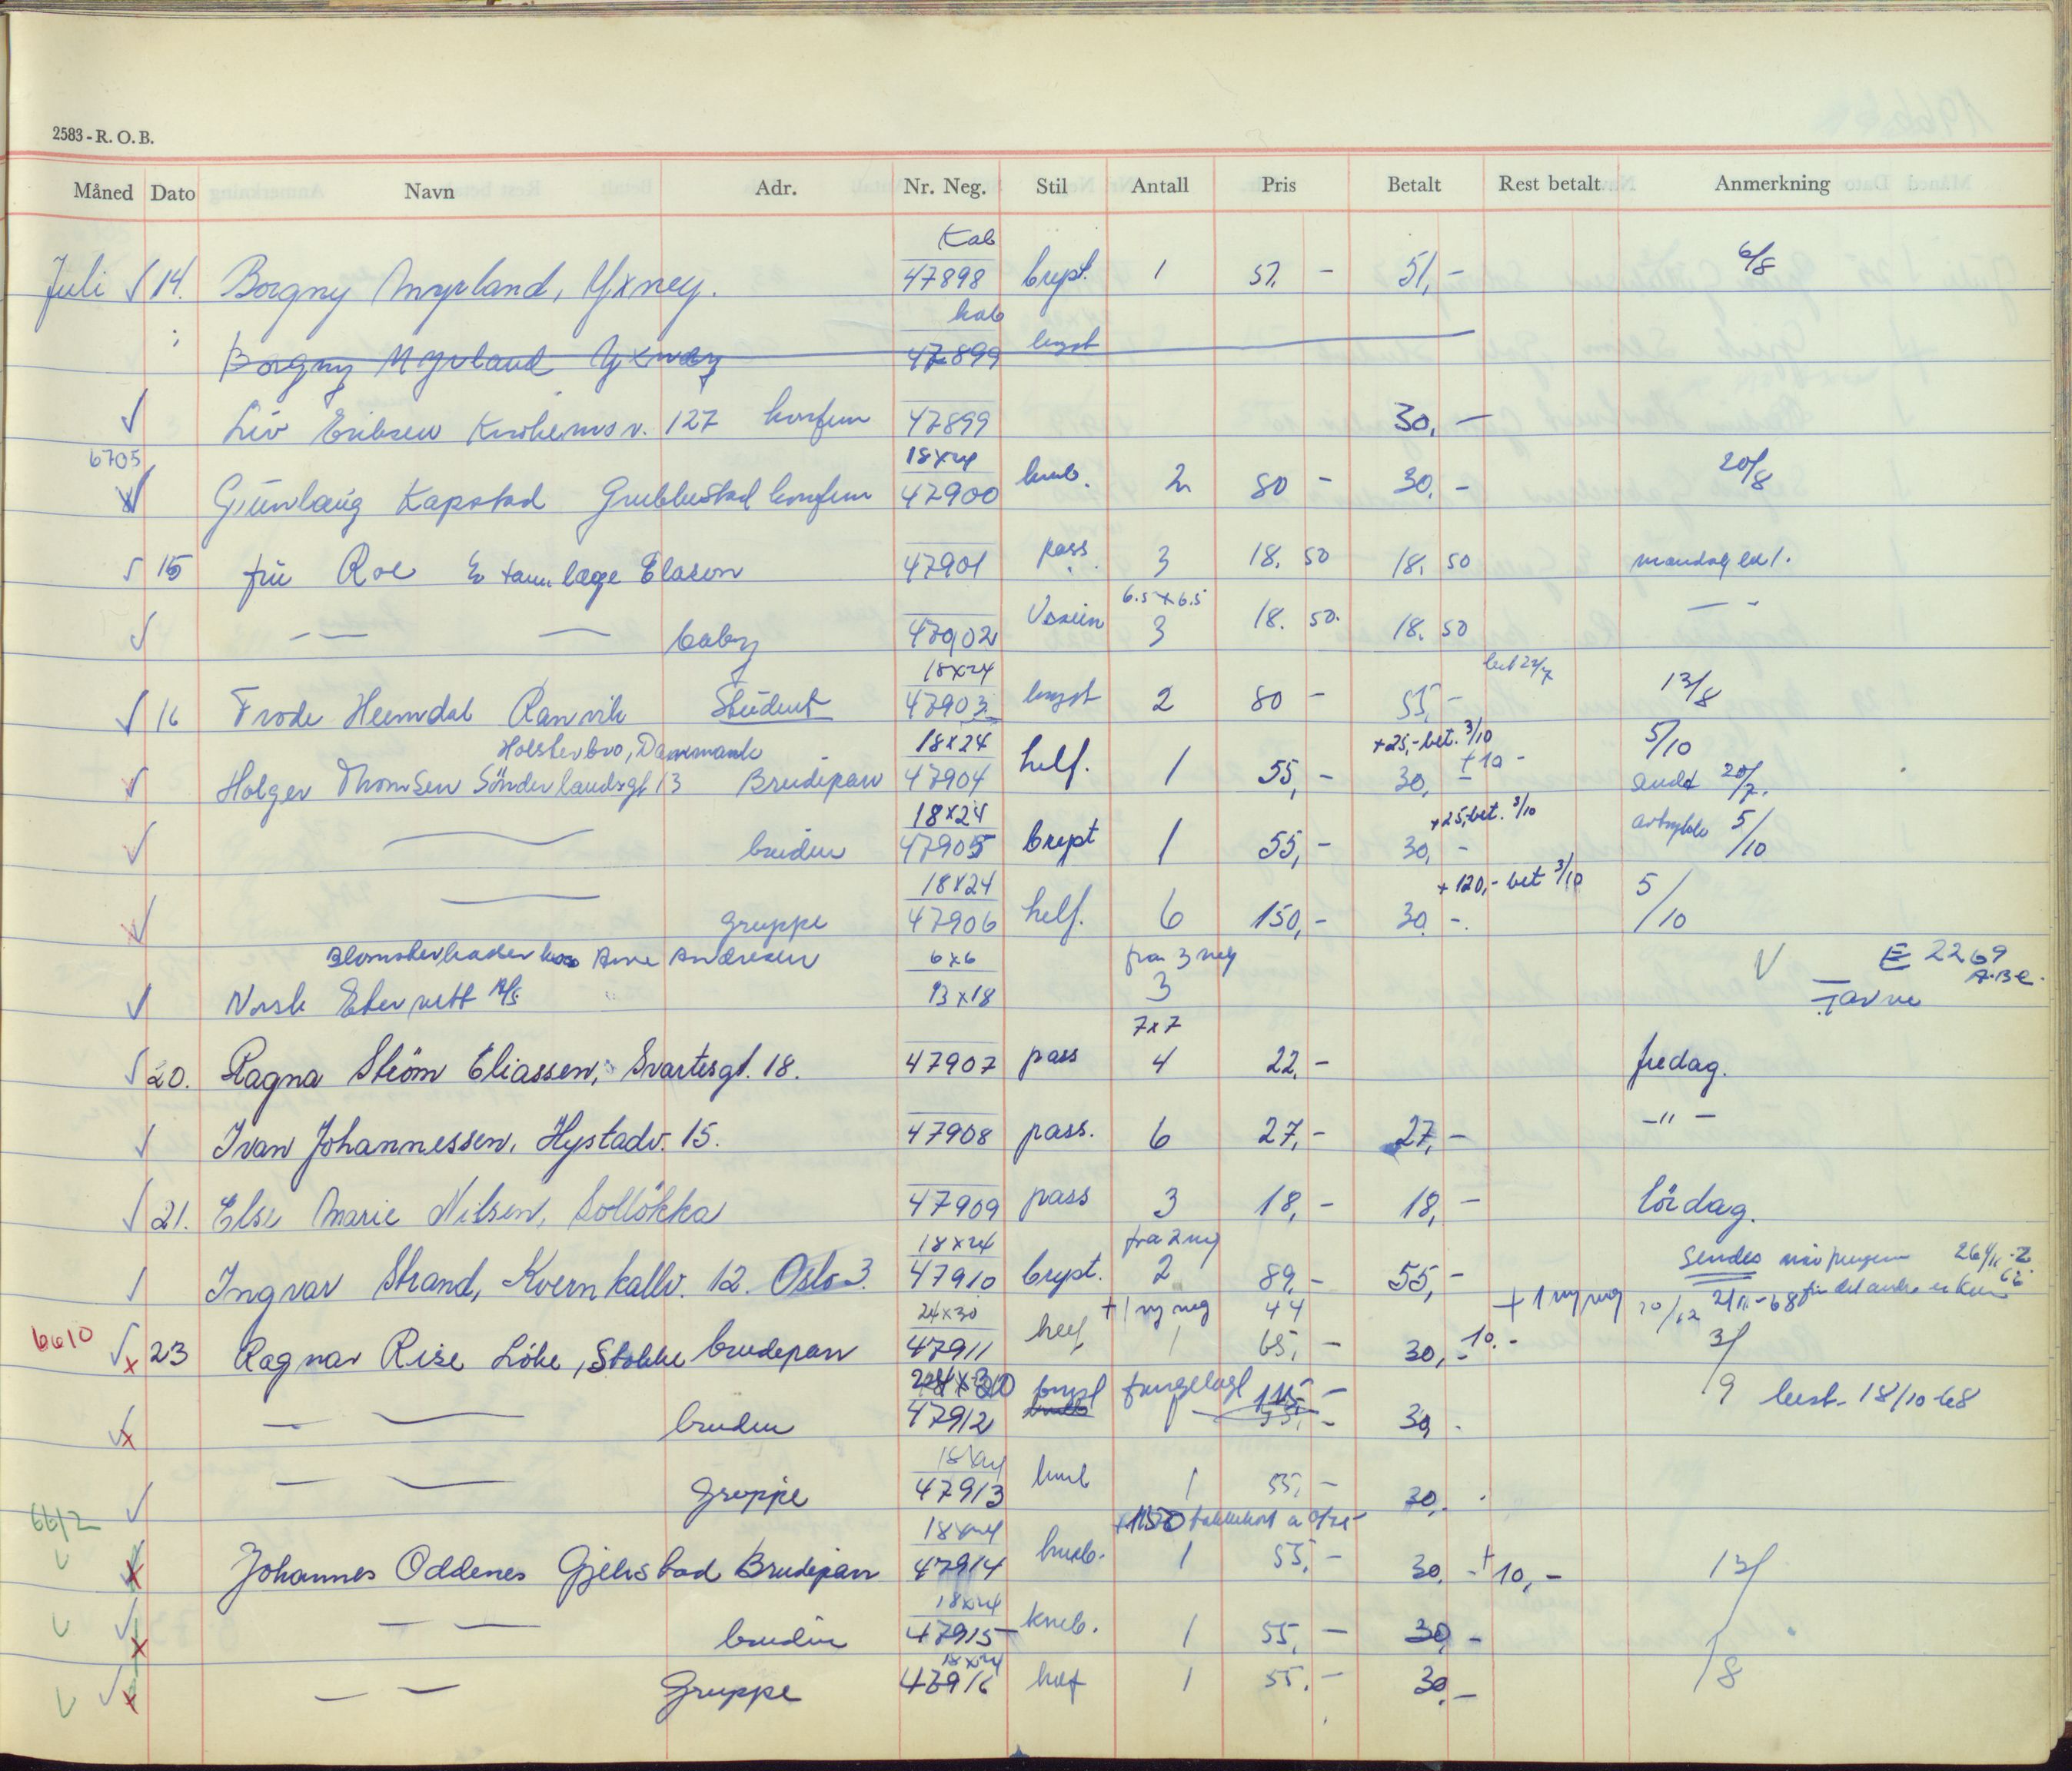 2583 - R. O. B.
Måned Dato Navn Adr. Nr. Neg. Stil Antall Pris Betalt Rest betalt Anmerkning
Kab
Juli 14. Borgny Myrland, Yxney. 47898 bryst. 1 51. - 51,- 6/8
kab
Borgny Myrland Yxney 47899 bryst
Liv Eriksen 127 konfirm 47899 30,-
6705 18x24
Gunlaug Kapstad konfirm 47900 kneb. 2 80 - 30,- 20/8
15 fru Roe 47901 pass 3 18. 50 18. 50 mandag
6.5 x 6.5
— — baby 47902 3 18. 50. 18. 50 — -
18x24
16 Frode Heimdal Ranvik Student 47903 bryst 2 80 - 55,- 13/8
Holsterbro, Danmark 18x24 +25,- bet. 3/10 5/10
Holger Thomsen Sönderlandsgt 13 Brudepar 47904 helf. 1 55,- 30,- +10 - sendt 20/7.
18x24 +25,- bet. 3/10
bruden 47905 bryst 1 55,- 30,- 5/10
18x24 +120,- bet 3/10
gruppe 47906 helf. 6 150,- 30,- 5/10
Arne Andresen 6x6 fra 3 neg E 2269
Norsk A/S 13x18 3
7x7
20. Ragna Ström Eliassen, Svartesgt. 18. 47907 pass 4 22,- fredag.
Ivan Johannessen, Hystadv. 15. 47908 pass. 6 27,- 27,- -"-
21. Else Marie Nilsen, Solløkka 47909 pass 3 18,- 18,- lördag.
18x24 fra 2 neg Sendes
Ingvar Strand, Kvernkallv. 12. Oslo 3. 47910 bryst. 2 89,- 55,-
24x30 + 1 ny neg 44 + 1 ny neg
6610 23 Ragnar Rise Löke, Stokke brudepar 47911 helf 1 65,- 30,- 10.- 3/9
bryst
— bruden 47912 30 - best. 18/10-68
18x24
— Gruppe 47913 kneb 1 55,- 30,-
6612 18x24 +150 takkekort a
Johannes Oddenes Brudepar 47914 kneb. 1 55,- 30,- +10,- 13/8
18x24
— — bruden 47915 kneb. 1 55,- 30,-
18x24
— — Gruppe 47916 helf 1 55,- 30,-